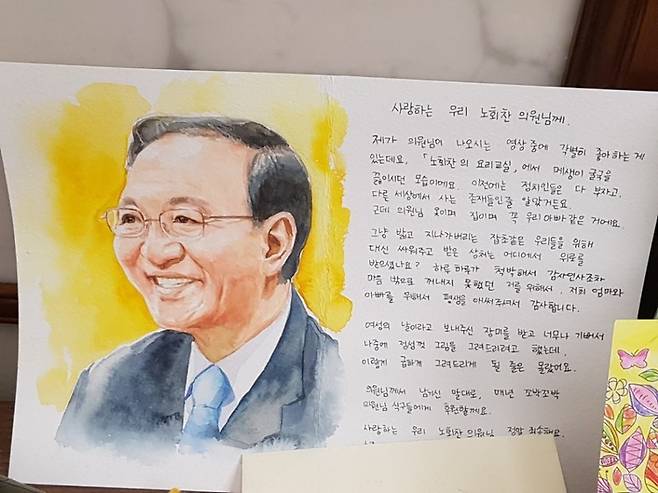 사랑하는 우리 노회찬 의원님께.
제가 의원님이 나오시는 영상 중에 각별히 좋아하는 게
있는데요, 「노회찬의 요리교실」에서 매생이 굴국을
끓이시던 모습이에요. 이전에는 정치인들은 다 부자고,
다른 세상에서 사는 존재들인줄 알았거든요.
근데 의원님 옷이며 집이며 꼭 우리 아빠 같은 거에요.
그냥 밟고 지나가버리는 잡초같은 우리들을 위해
대신 싸워주고 받은 상처는 어디에서 위로를
받으셨나요? 하루하루가 척박해서 감사인사조차
마음 밖으로 꺼내지 못했던 저를 위해서, 저희 엄마와
아빠를 위해서 평생을 애써주셔서 감사합니다.
여성의 날이라고 보내주신 장미를 받고 너무나 기뻐서
나중에 정성껏 그림을 그려드리려고 했는데,
이렇게 급하게 그려드리게 될 줄은 몰랐어요.
의원님께서 남기신 말대로, 매년 꼬박꼬박
의원님 식구들에게 후원할게요.
사랑하는 우리 노회찬 의원님 정말 죄송해요.